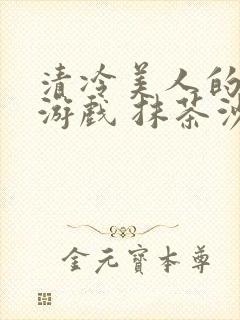 清冷美人的
游戏 抹茶沙
金元寶本尊